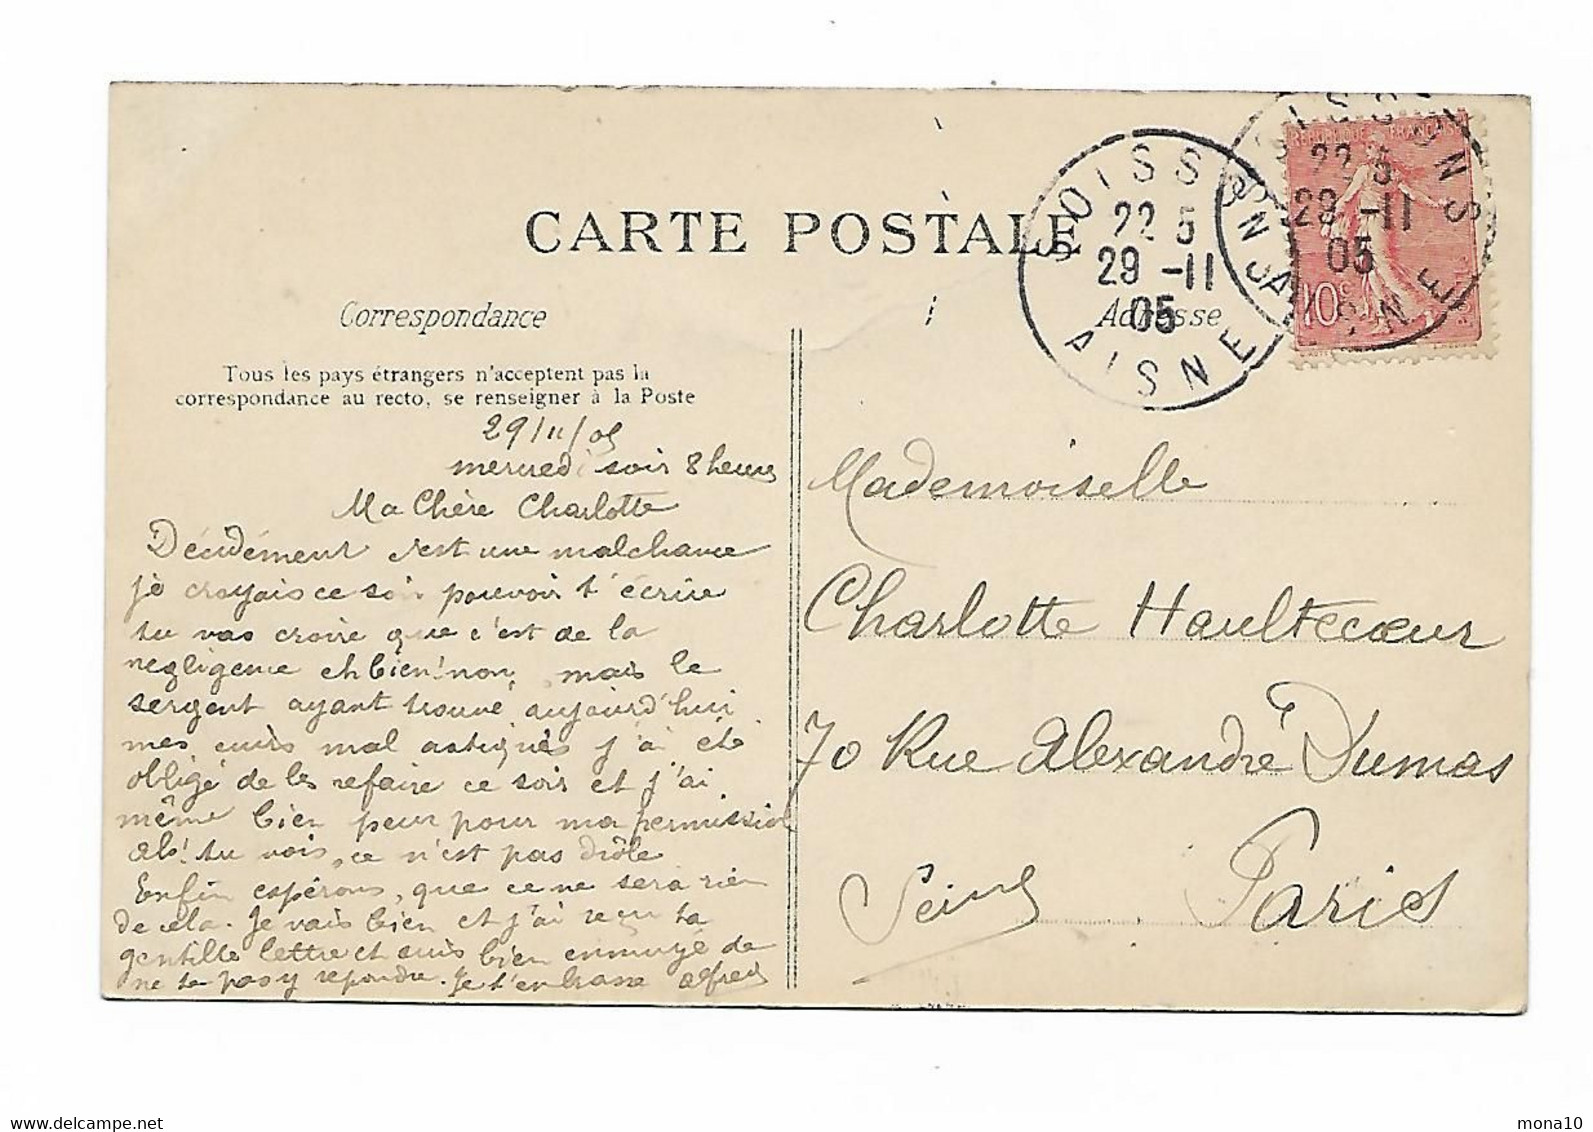 CARTE POSTALE
Correspondance
Tous les pays étrangers n'acceptent pas la
correspondance au recto, se renseigner à la Poste
29/11/05
mercredi soir 8 heures
Ma Chère Charlotte
Décidément c'est une malchance
je croyais ce soir pouvoir t'écrire
tu vas croire que c'est de la
negligence eh bien! non, mais le
sergent ayant trouvé aujourd'hui
mes cuirs mal astiqués j'ai été
obligé de les refaire ce soir et j'ai
même bien peur pour ma permission
ah! tu vois, ce n'est pas drôle
Enfin espérons, que ce ne sera rien
de cela. Je vais bien et j'ai reçu ta
gentille lettre et suis bien ennuyé de
ne te pas y repondre. Je t'embrasse Alfred
SOISSONS
22 5
29 -11
05
AISNE
SOISSONS
22 5
29 -11
05
AISNE
REPUBLIQUE FRANÇAISE
10c
Adresse
Mademoiselle
Charlotte Haultecœur
70 Rue Alexandre Dumas
Paris
Seine
delcampe.net
mona10